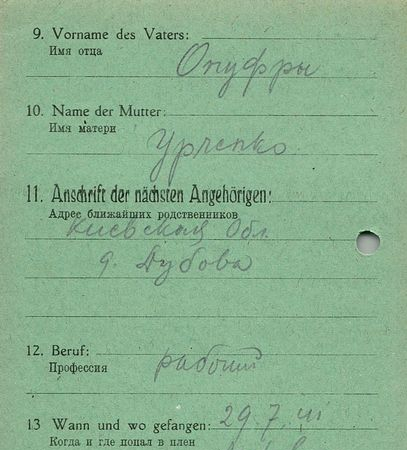 9. Vorname des Vaters:
Имя отца
Онуфры
10. Name der Mutter:
Имя матери
Урченко
11. Anschrift der nächsten Angehörigen:
Адрес ближайших родственников
Киевская Обл.
д. Дубова
12. Beruf:
Профессия
рабочий
13 Wann und wo gefangen: 29.7.41
Когда и где попал в плен